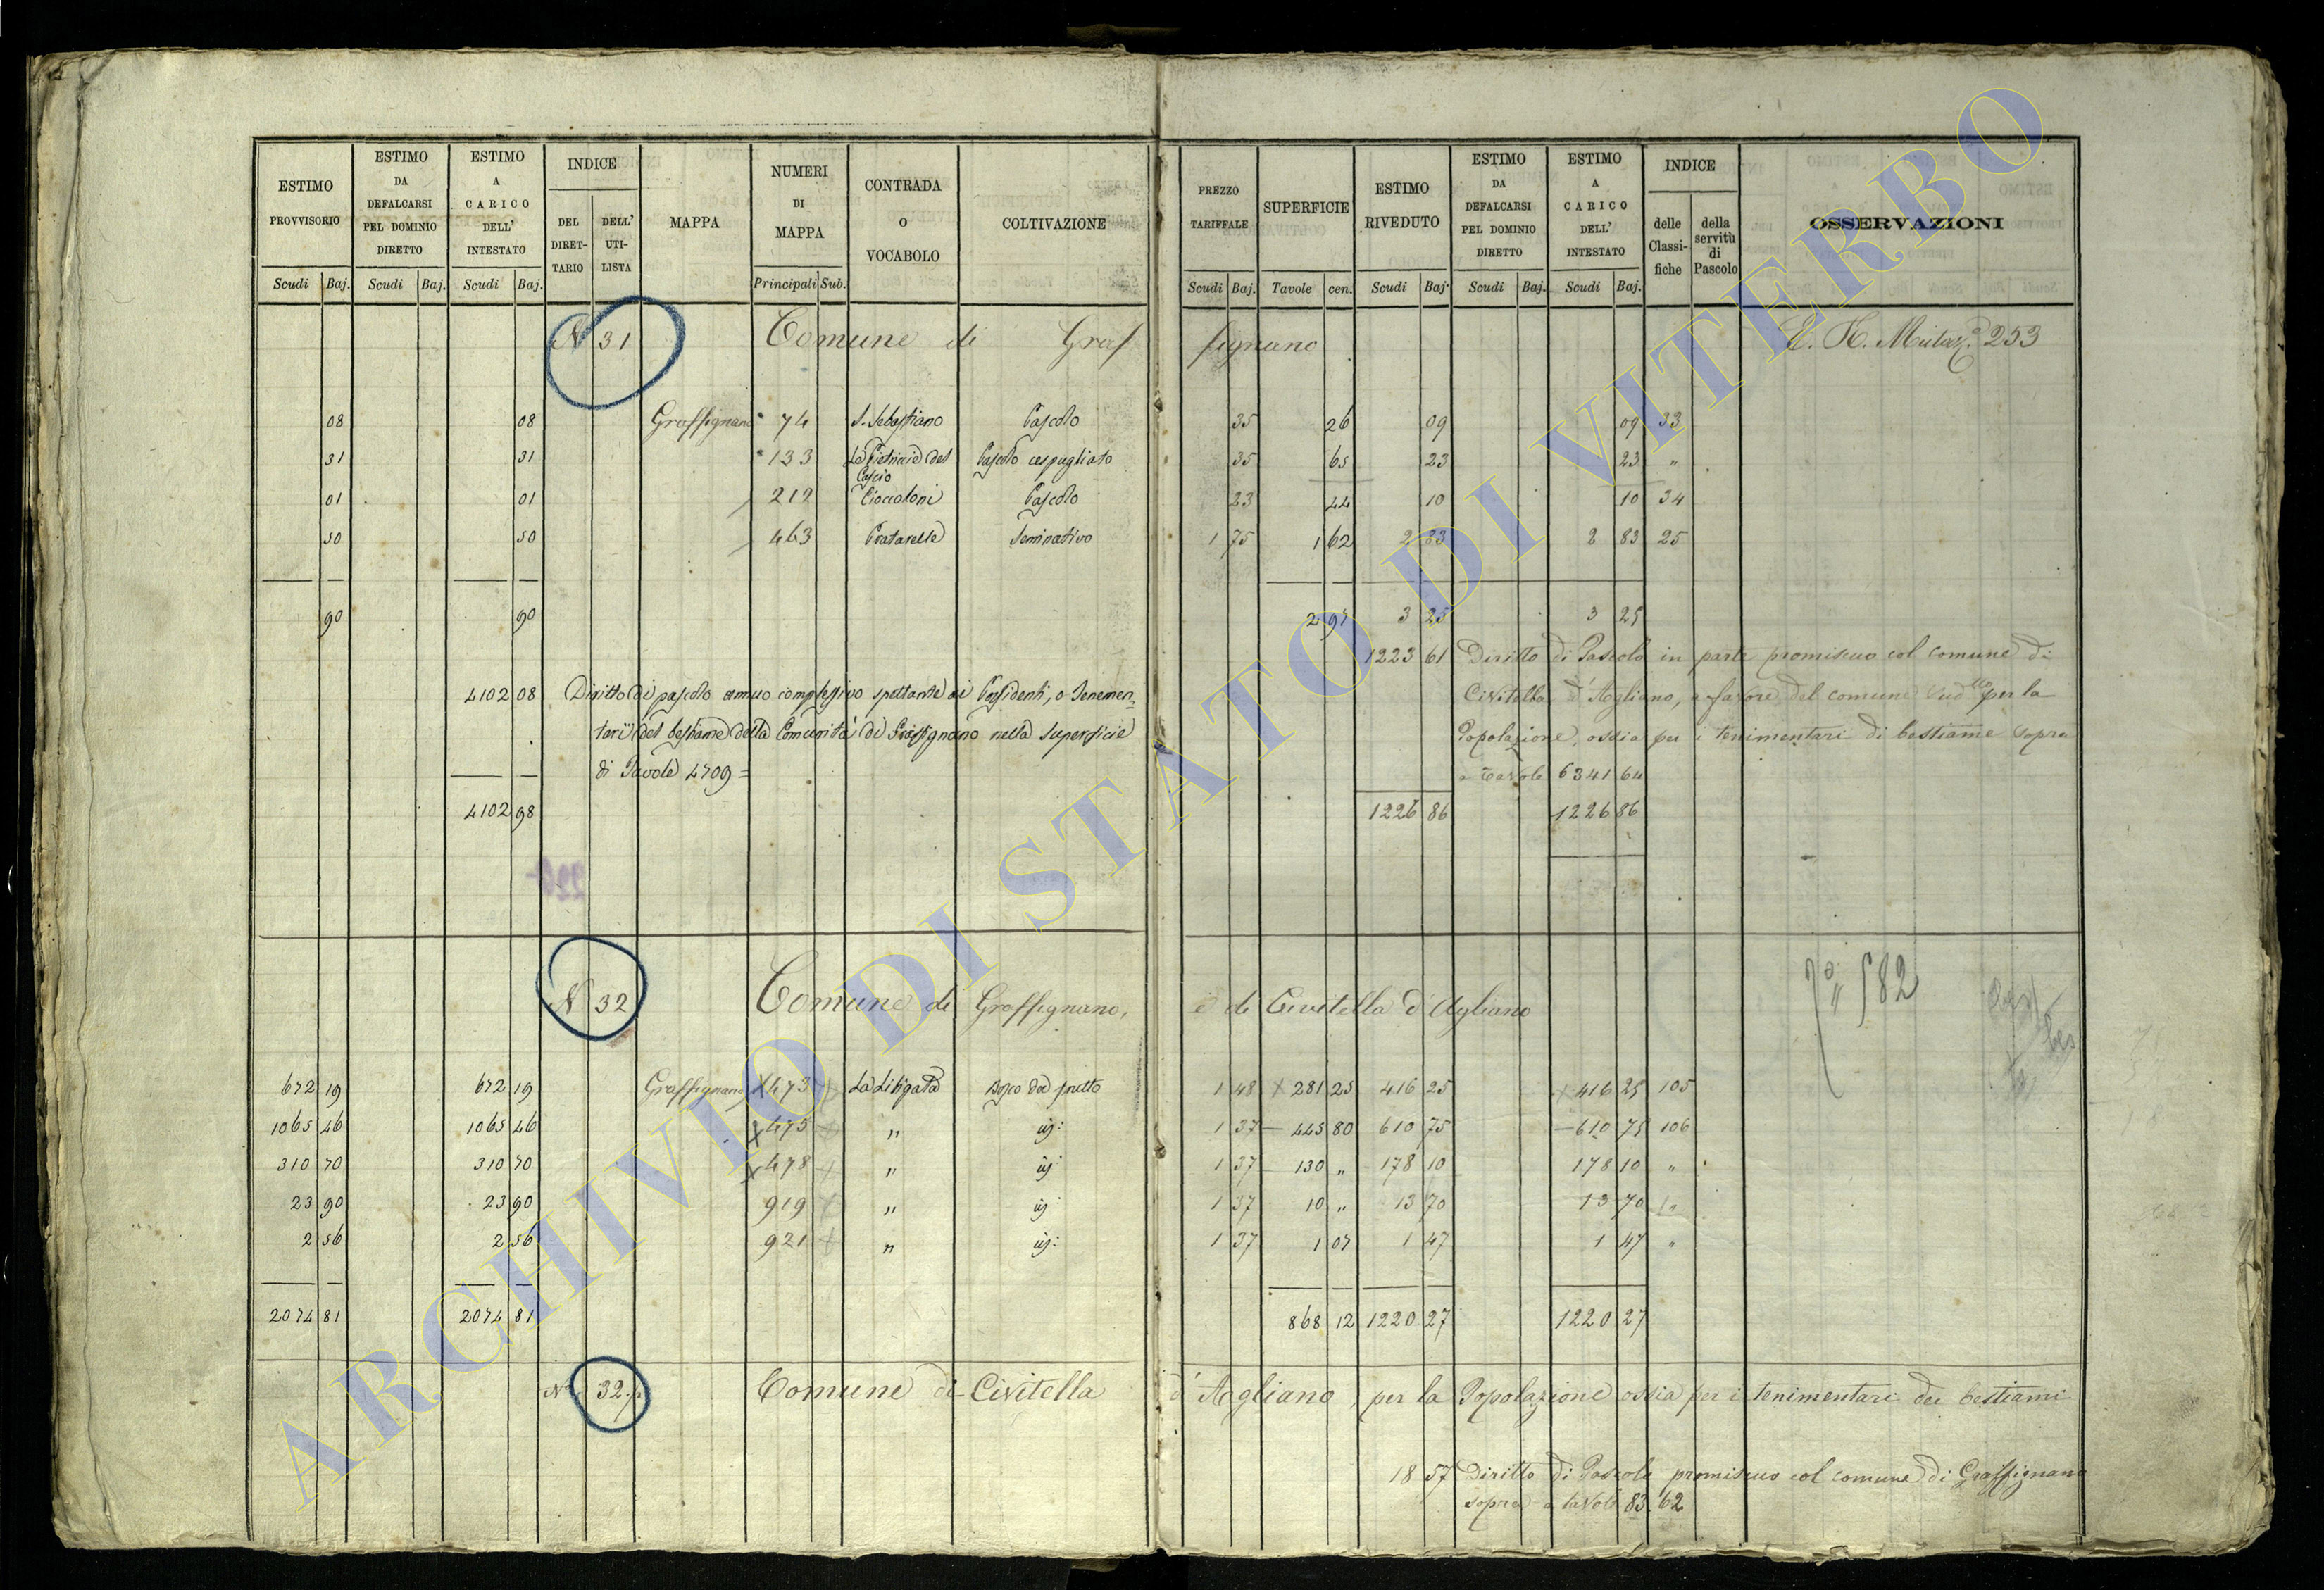 ESTIMO PROVVISORIO
ESTIMO DA DEFALCARSI PEL DOMINIO DIRETTO
ESTIMO A CARICO DELL' INTESTATO
INDICE
DEL DIRET-TARIO
DELL' UTI-LISTA
MAPPA
NUMERI DI MAPPA
CONTRADA O VOCABOLO
COLTIVAZIONE
PREZZO TARIFFALE
SUPERFICIE
ESTIMO RIVEDUTO
ESTIMO DA DEFALCARSI PEL DOMINIO DIRETTO
ESTIMO A CARICO DELL' INTESTATO
INDICE
delle Classi-fiche
della servitù di Pascolo
OSSERVAZIONI
Scudi Baj. Scudi Baj. Scudi Baj. Principali Sub. Scudi Baj. Tavole cen. Scudi Baj. Scudi Baj. Scudi Baj.
N 31 Comune di Graffignano 253
08 08 Graffignano 74 S. Sebastiano Pascolo 35 26 09 09 33
31 31 133 Le Pietriccie del Cascio Pascolo cespugliato 35 65 23 23 "
01 01 212 Cioccoloni Pascolo 23 44 10 10 34
50 50 463 Pratarelle Seminativo 1 75 1 62 2 83 2 83 25
90 90 2 97 3 25 3 25
1223 61 Diritto di Pascolo in parte promiscuo col comune di
4102 08 Diritto di pascolo annuo complessivo spettante ai Possidenti, o Tenemen=
Civitella d'Agliano, a favore del comune per la
tari del bestiame della Comunità di Graffignano nella superficie
Popolazione, ossia per i tenimentari di bestiame sopra
di Tavole 4709=
a Tavole 6341 64
4102 98 1226 86 1226 86
N 32 Comune di Graffignano, e di Civitella d'Agliano
582
672 19 672 19 Graffignano 473 La Litigata Bosco da frutto 1 48 281 25 416 25 416 25 105
1065 46 1065 46 475 " id: 1 37 445 80 610 75 610 75 106
310 70 310 70 478 " id: 1 37 130 " 178 10 178 10 "
23 90 23 90 919 " id: 1 37 10 " 13 70 13 70 "
2 56 2 56 921 " id: 1 37 1 07 1 47 1 47 "
2074 81 2074 81 868 12 1220 27 1220 27
N 32 Comune di Civitella d'Agliano, per la Popolazione ossia per i tenimentari dei bestiami
18 57 Diritto di Pascolo promiscuo col comune di Graffignano
sopra a tavole 83 62
ARCHIVIO DI STATO DI VITERBO